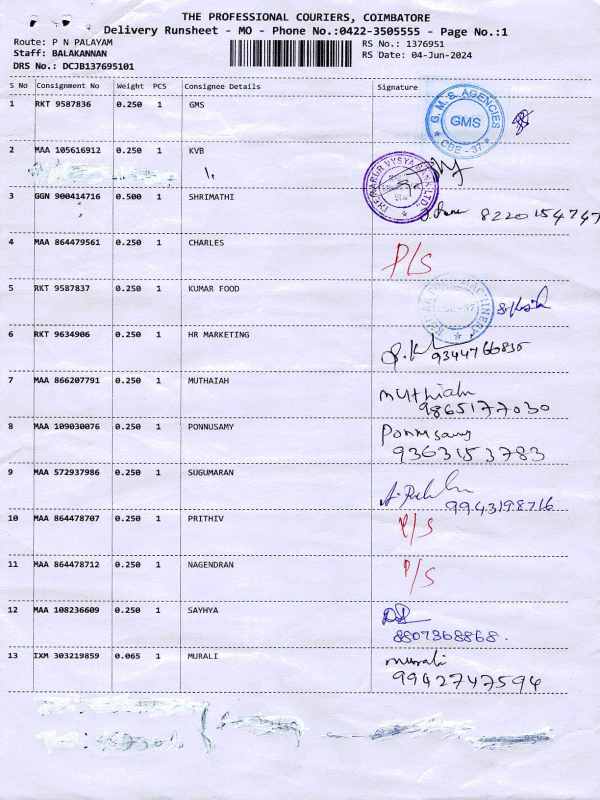 THE PROFESSIONAL COURIERS, COIMBATORE
Delivery Runsheet - MO - Phone No.:0422-3505555 - Page No.:1
Route: P N PALAYAM
Staff: BALAKANNAN
DRS No.: DCJB137695101
RS No.: 1376951
RS Date: 04-Jun-2024
S No Consignment No Weight PCS Consignee Details Signature
1 RKT 9587836 0.250 1 GMS
G.M.S. AGENCIES
GMS
CBE - 37
2 MAA 105616912 0.250 1 KVB
3 GGN 900414716 0.500 1 SHRIMATHI
8220154747
4 MAA 864479561 0.250 1 CHARLES P/S
5 RKT 9587837 0.250 1 KUMAR FOOD
6 RKT 9634906 0.250 1 HR MARKETING
9344766835
7 MAA 866207791 0.250 1 MUTHAIAH muthiah
9865177030
8 MAA 109030076 0.250 1 PONNUSAMY Ponnusamy
9363153783
9 MAA 572937986 0.250 1 SUGUMARAN
9943198716
10 MAA 864478707 0.250 1 PRITHIV P/S
11 MAA 864478712 0.250 1 NAGENDRAN P/S
12 MAA 108236609 0.250 1 SAYHYA
8807368868.
13 IXM 303219859 0.065 1 MURALI murali
9942747594